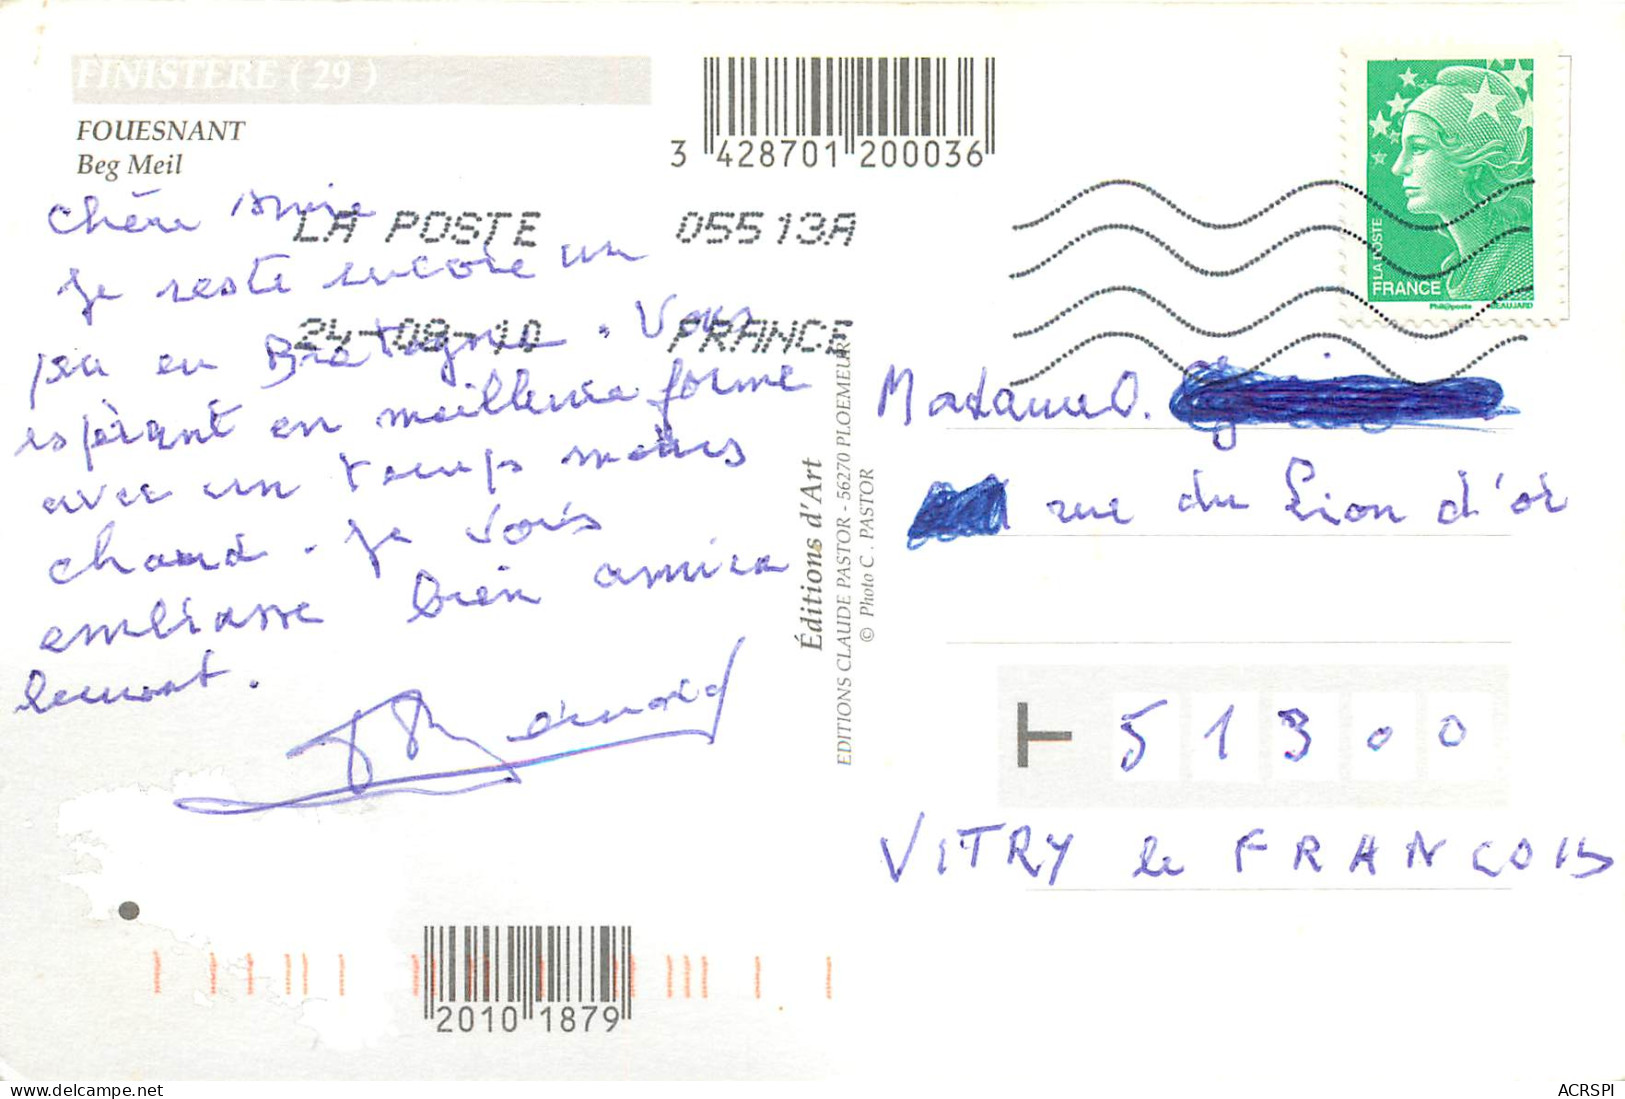 FINISTERE ( 29 )
FOUESNANT
Beg Meil
3 428701 200036
LA POSTE 05513A
24-08-10 FRANCE
LA POSTE
FRANCE
Phil@poste
BEAUJARD
Chère Amie
Je reste encore un
peu en Bretagne. Vous
espérant en meilleure forme
avec un temps moins
chaud. Je vous
embrasse bien amica
lement.
Bernard
Éditions d'Art
EDITIONS CLAUDE PASTOR - 56270 PLOEMEUR
© Photo C. PASTOR
Madame O.
rue du Lion d'or
51300
VITRY le FRANCOIS
2010 1879
ACRSPI